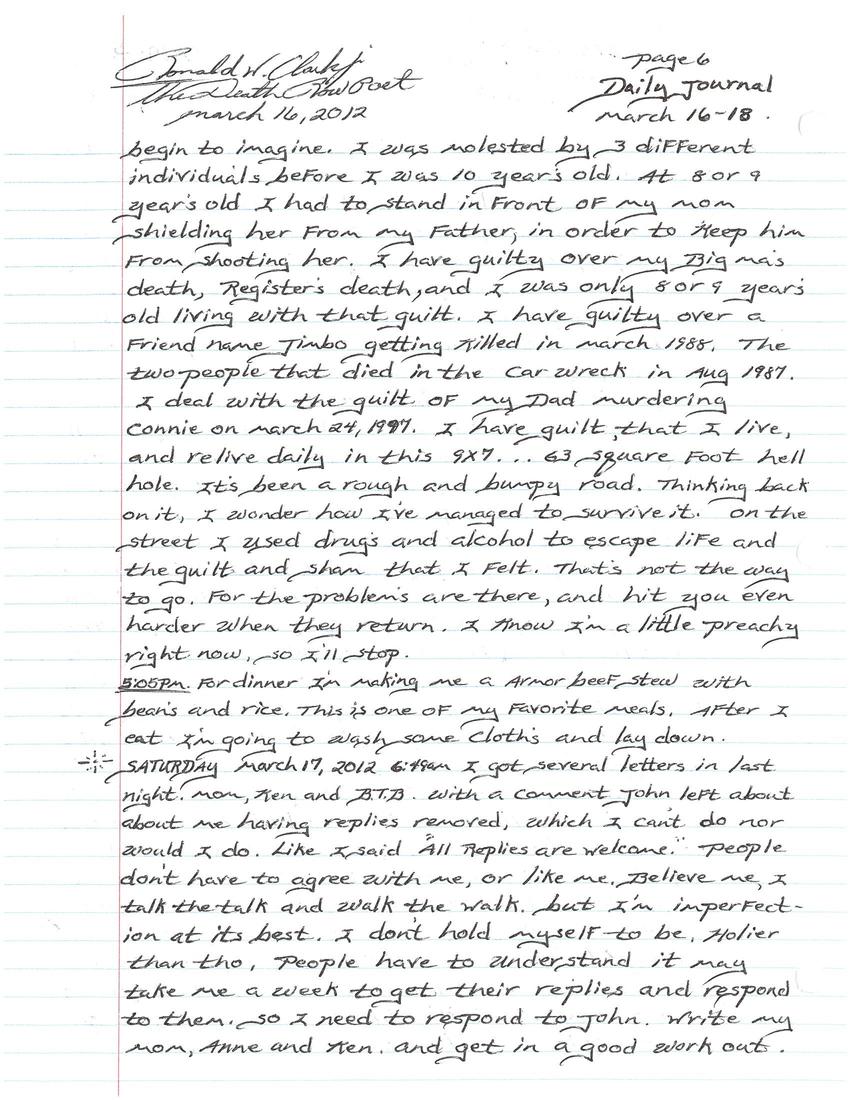 Ronald W. Clark Jr
page 6
The Death Row Poet
Daily Journal
march 16, 2012
march 16-18.
begin to imagine. I was molested by 3 different
individuals before I was 10 year's old. At 8 or 9
year's old I had to stand in Front OF my mom
shielding her From my Father, in order to Keep him
From shooting her. I have guilty over my Big ma's
death, Register's death, and I was only 8 or 9 year's
old living with that guilt. I have guilty over a
Friend name Jimbo getting Killed in march 1988. The
two people that died in the Car wreck in Aug 1987.
I deal with the guilt OF my Dad murdering
Connie on march 24, 1997. I have guilt, that I live,
and relive daily in this 9x7... 63 square Foot hell
hole. It's been a rough and bumpy road. Thinking back
on it, I wonder how I've managed to survive it. On the
street I used drug's and alcohol to escape liFe and
the guilt and sham that I Felt. That's not the way
to go. For the problem's are there, and hit you even
harder when they return. I Know I'm a little preachy
right now, so I'll stop.
5:05pm. For dinner I'm making me a Armor beeF stew with
bean's and rice. This is one OF my Favorite meals. AFter I
eat I'm going to wash some Cloth's and lay down.
SATURDAY March 17, 2012 6:49am I got several letters in last
night. mom, Ken and B.T.B. With a Comment John left about
about me having replies removed, which I can't do nor
would I do. Like I said "All Replies are welcome." People
don't have to agree with me, or like me. Believe me, I
talk the talk and walk the walk. but I'm imperFect-
ion at its best. I don't hold myselF to be, Holier
than tho, People have to understand it may
take me a week to get their replies and respond
to them. so I need to respond to John. Write my
mom, Anne and Ken. and get in a good work out.